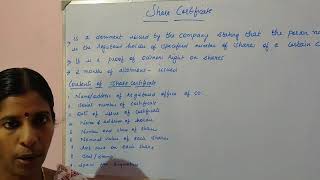 Share Certificate
? is a document issued by the company stating that the person na
is the registered holder of specified number of shares of a certain c
? It is a proof of owners right on shares
? 2 months of allotment - issued
Contents of Share certificate
Name/address of Registered office of co.
Serial number of certificate
Date of issue of certificate
Name & address of
Number and class of shares
Nominal value of each shares
paid on each share
Seal/
Space for signature